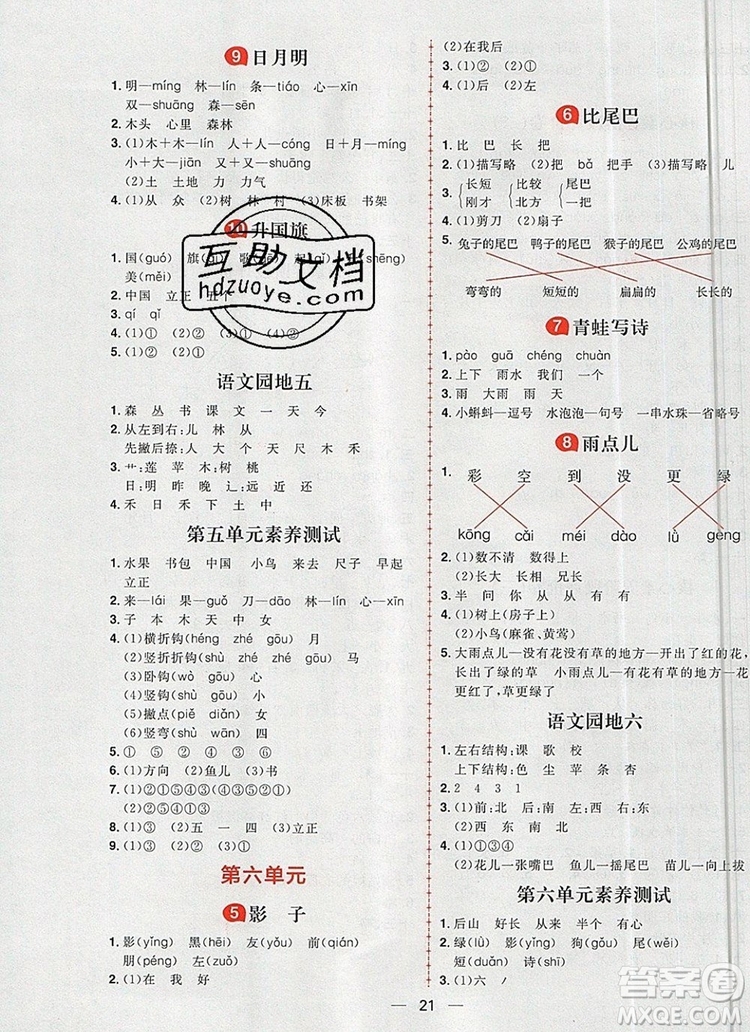 9 日月明
1. 明—míng 林—lín 条—tiáo 心—xīn
双—shuāng 森—sēn
2. 木头 心里 森林
3. (1)木＋木—林 人＋人—从 日＋月—明
小＋大—尖 田＋力—男
(2)土 土地 力 力气
4. (1)从 众 (2)树 林 村 (3)床板 书架
10 升国旗
1. 国(guó) 旗(qí) 歌( 起(qǐ) (shēng)
美(měi)
2. 中国 立正 五个
3. qí qǐ
4. (1)① (2)② (3)① (4)② ①
5. (1)① (2)②
语文园地五
1. 森 丛 书 课 文 一 天 今
2. 从左到右:儿 林 从
先撇后捺:人 大 个 天 尺 木
3. 艹:莲 苹 木:树 桃
日:明 昨 晚 辶:远 近 还
4. 禾 日 禾 下 土 中
第五单元素养测试
1. 水果 书包 中国 小鸟 来去 尺子 早起
立正
2. 来—lái 果—guǒ 刀—dāo 林—lín
3. 子 本 木 天 中 女
4. (1)横折钩(héng zhé gōu) 月
(2)竖折折钩(shù zhé zhé gōu) 马
(3)卧钩(wò gōu) 心
(4)竖钩(shù gōu) 小
(5)撇点(piě diǎn) 女
(6)竖弯(shù wān) 四
5. ① ⑤ ② ④ ③ ⑥
6. (1)方向 (2)鱼儿 (3)书
7.
8. (1)③ (2)五 一 四 (3)立正
9. (1)③ (2)② (3)④ (4)①
第六单元
5 影 子
1. 影(yǐng) 黑(hēi) 友(yǒu) 前(qián)
朋(péng) 左(zuǒ)
2. (1)在 我 好
(2)在我后
3. (1)② (2)①
4. (1)后 (2)左
6 比尾巴
1. 比 巴 长 把
2. (1)描写略 (2)把 bǎ 把手 (3)描写略
3. 长短 比较 尾巴
刚才 北方 一把
4. (1)剪刀 (2)扇子
5. 兔子的尾巴 鸭子的尾巴 猴子的尾巴 公鸡的尾巴
弯弯的 短短的 扁扁的 长长的
7 青蛙写诗
1. pào guā chéng chuàn
2. 上下 雨水 我们 一个
3. 雨 大雨 雨天 雨
4. 小蝌蚪—逗号 水泡泡—句号 一串水珠—省略号
8 雨点儿
1. 彩 空 到 没 更 绿
kōng cǎi méi dào lǜ gèng
2. (1)数不清 数得上
(2)长大 长江
3. 半 问 你 从 从 有 有
4. (1)树上(房子上)
(2)小鸟(麻雀、黄莺)
5. 大雨点儿—没有花没有草的地方—开出了红的花,
长出了绿的草 小雨点儿—有花有草的地方—花
更红了,草更绿了
语文园地六
1. 左右结构:课 歌 校
上下结构:色 尘 苹 条 杏
2. 2 4 3 1
3. (1)前;北 后;南 左;西 右;东
4. (1)①③④
(2)花儿—张嘴巴 鱼儿—摇尾巴 苗儿—向上拔
第六单元素养测试
1. 后山 好长 从今 水草 有个 你们
2. 绿(lǜ) 影(yǐng) 狗(gǒu) 尾(wěi)
短(duǎn) 诗(shī)
3. (1)六
21
互助文档
hdzuoye.com
答案圈
MXQE.COM